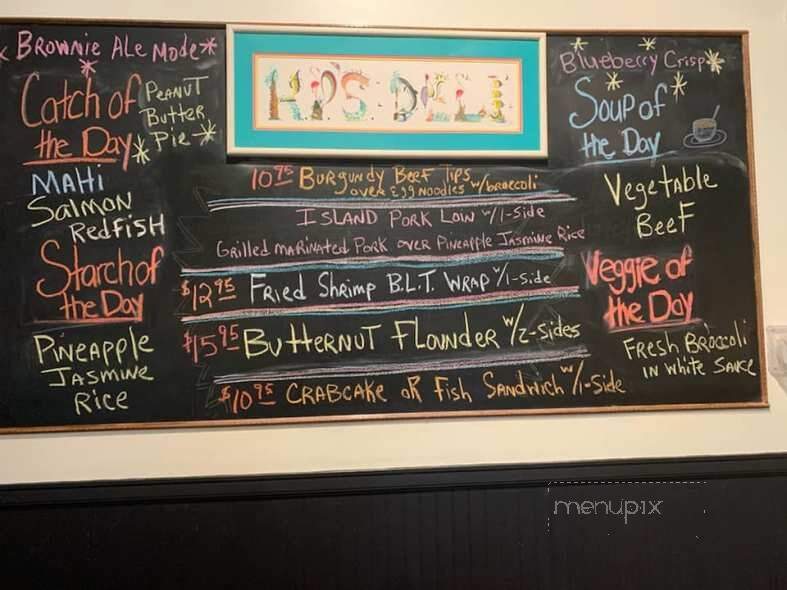 * Brownie Ale Mode *
Catch of
the Day
Peanut
Butter
Pie
Mahi
Salmon
Redfish
Starch of
the Day
Pineapple
Jasmine
Rice
K.P.'S DELI
10.95 Burgundy Beef Tips
over Egg Noodles w/broccoli
Island Pork Loin w/1-side
Grilled marinated Pork over Pineapple Jasmine Rice
$12.95 Fried Shrimp B.L.T. Wrap w/1-side
$15.95 Butternut Flounder w/2-sides
$10.95 Crabcake or Fish Sandwich w/1-side
Blueberry Crisp
Soup of
the Day
Vegetable
Beef
Veggie of
the Day
Fresh Broccoli
in White Sauce
menupix